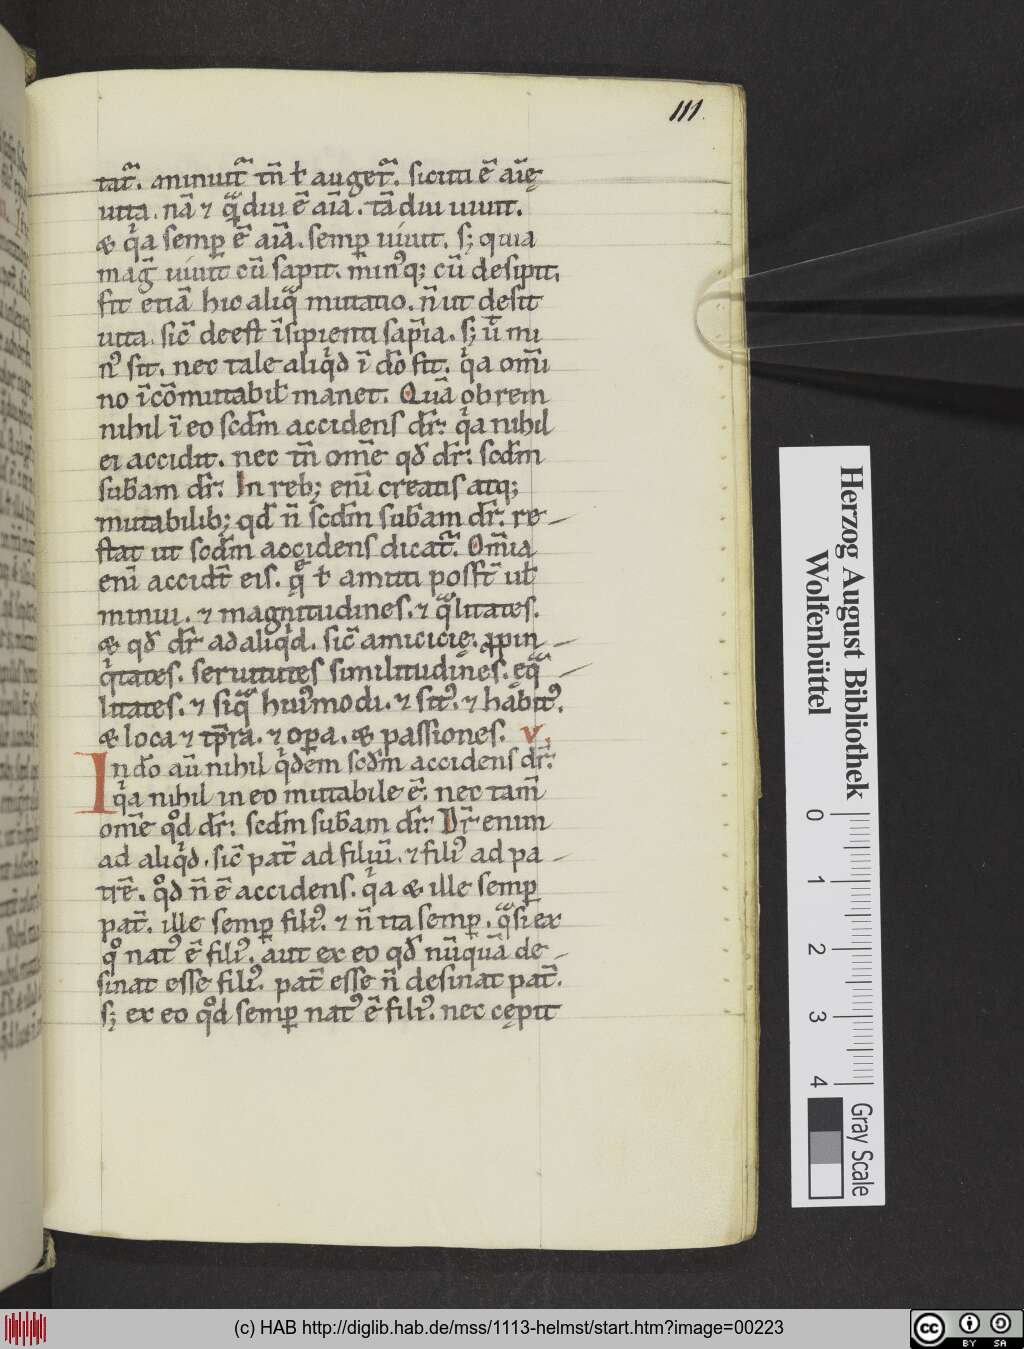 111
tat᷑. minuit᷑ tn̄ ł auget᷑. sicuti ē aīę
uita. nā ⁊ qͣ̄diu ē aīa. tādiu uiuit.
& qͥa semꝑ ē aīa. semꝑ uiuit. s; quia
mag̅ uiuit cū sapit. min᷒q; cū desipit.
fit etiā hic aliqͣ mutatio. n̄ ut desit
uita. sic̄ deest īsipienti sap̄ia. s; ut̄ mi
n᷒ sit. nec tale aliqͥd ī dō fit. qͥa om̄i
no īcōmutabił manet. Quā obrem
nihil ī eo scd̄m accidens dr̄: qͥa nihil
ei accidit. nec tn̄ om̄e qđ dr̄: scd̄m
sub̄am dr̄: In reb; eni̅ creatis atq;
mutabilib; qđ n̄ scd̄m sub̄am dr̄. re
stat ut scd̄m accidens dicat᷑. Om̄ia
eni̅ accidt̄ eis. qę̄ ł amitti posst̄ uł
minui. ⁊ magnitudines. ⁊ qͣlitates.
& qđ dr̄ ad aliqͥd. sic̄ amicicię. ꝓpin
qͥtates. seruitutes similitudines. ęqͣ
litates. ⁊ siqͣ hui᷒modi. ⁊ sit᷒. ⁊ habit᷒.
& loca ⁊ tp̄ra. ⁊ oꝑa. & passiones. v.
In dō aū nihil qͥdem scd̄m accidens dr̄:
qͥa nihil in eo mutabile ē. nec tam̄
om̄e qͦd dr̄: scd̄m sub̄am dr̄: Dr̄ enim
ad aliqͥd. sic̄ pat̄ ad filiū. ⁊ fili᷒ ad pa
trē. qͦd n̄ ē accidens. qͥa & ille semꝑ
pat̄. ille semꝑ fili᷒. ⁊ n̄ ita semꝑ. qͣsi ex
qͦ nat᷒ ē fili᷒. aut ex eo qđ nūquā de
sinat esse fili᷒. pat̄ esse n̄ desinat pat̄.
s; ex eo qͦd semꝑ nat᷒ ē fili᷒. nec cępit
Herzog August Bibliothek
Wolfenbüttel
0
1
2
3
4
Gray Scale
(c) HAB http://diglib.hab.de/mss/1113-helmst/start.htm?image=00223
cc
BY SA